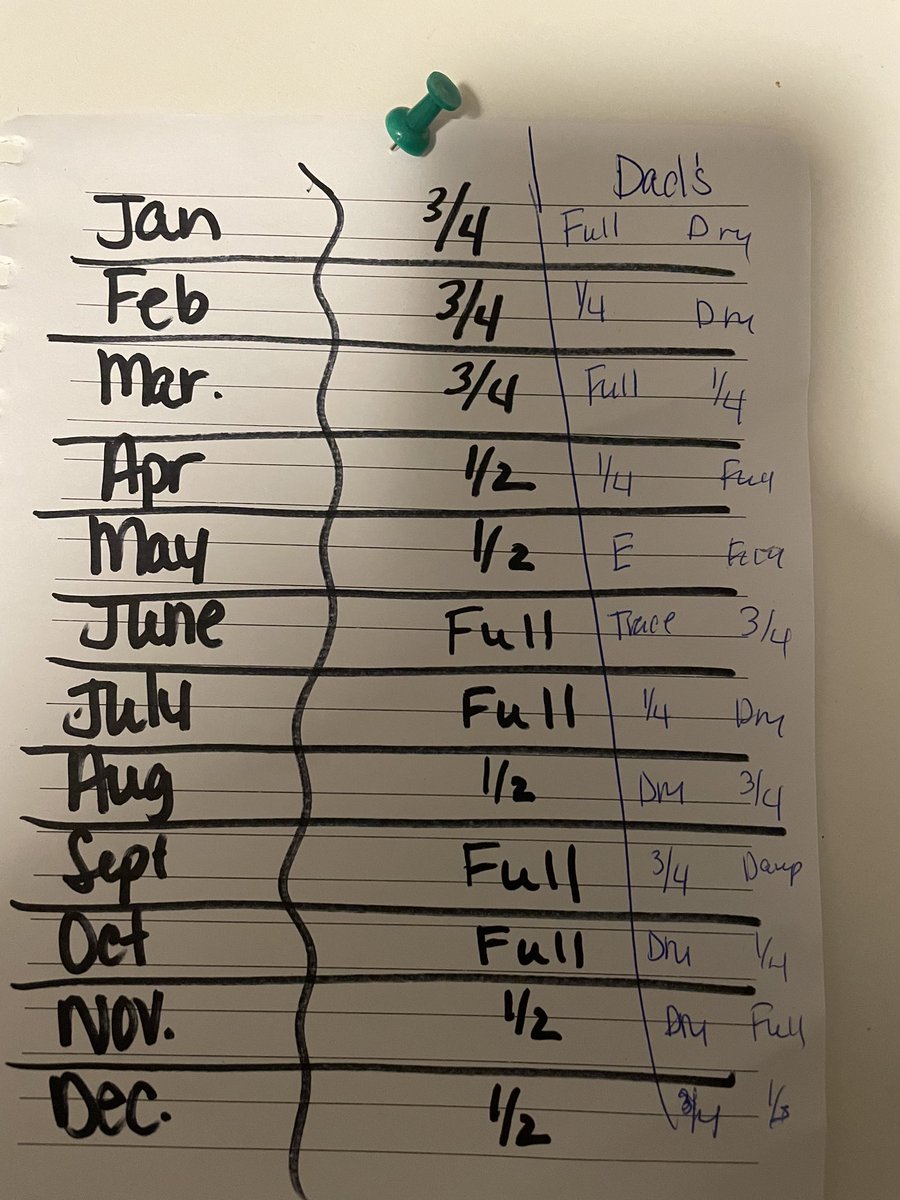 Dad's
Jan 3/4 Full Dry
Feb 3/4 1/4 Dry
Mar. 3/4 Full 1/4
Apr 1/2 1/4
May 1/2 E
June Full Trace 3/4
July Full 1/4 Dry
Aug 1/2 Dry 3/4
Sept Full 3/4 Damp
Oct Full Dry 1/4
Nov. 1/2 Dry Full
Dec. 1/2 3/4